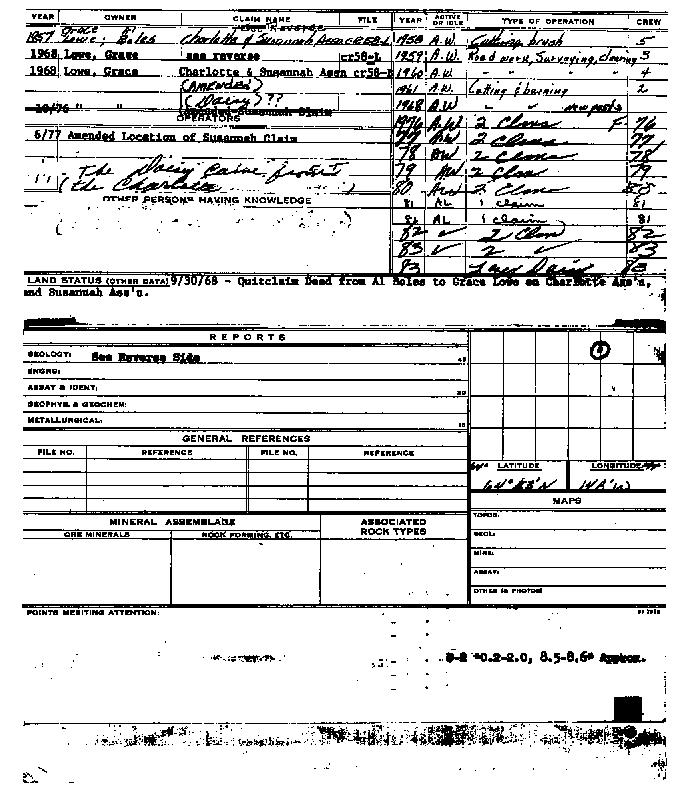 YEAR OWNER CLAIM NAME FILE YEAR ACTIVE OR IDLE TYPE OF OPERATION CREW
see Reverse
1957 Grace Lowe; Al Boles Charlotte & Susannah Assn CR58-L 1958 A.W. Cutting brush 5
1968 Lowe, Grace see reverse cr58-L 1959 A.W. Road work, Surveying, clearing 3
1968 Lowe, Grace Charlotte & Susannah Assn cr58-L 1960 A.W. " " " 4
(AMENDED) 1961 A.W. Cutting & burning 2
(Daisy)?? 1968 A.W " " new posts
10/76 " " Amended Susannah Claim
OPERATORS 1976 A.W 2 Clms F. 76
6/77 Amended Location of Susannah Claim 77 AW 2 Clms 77
78 AW 2 Clms 78
(The Daisy came from the Charlotte) 79 AW 2 Clms 79
80 AW 2 Clms 80
OTHER PERSONS HAVING KNOWLEDGE 81 AL 1 claim 81
81 AL 1 claim 81
82 ✓ 2 Clms 82
83 ✓ 2 ✓ 83
83 Daisy 83
LAND STATUS (OTHER DATA) 9/30/68 - Quitclaim Deed from Al Boles to Grace Lowe on Charlotte Ass'n,
and Susannah Ass'n.
REPORTS
GEOLOGY: See Reverse Side
ENGRG:
ASSAY & IDENT:
GEOPHYS. & GEOCHEM:
METALLURGICAL:
GENERAL REFERENCES
FILE NO. REFERENCE FILE NO. REFERENCE
LATITUDE LONGITUDE
MAPS
MINERAL ASSEMBLAGE ASSOCIATED ROCK TYPES
ORE MINERALS ROCK FORMING, ETC.
TOPOG:
GEOL:
MINE:
ASSAY:
OTHER & PHOTOS:
POINTS MERITING ATTENTION:
0.2-2.0, 8.5-8.6" Approx.